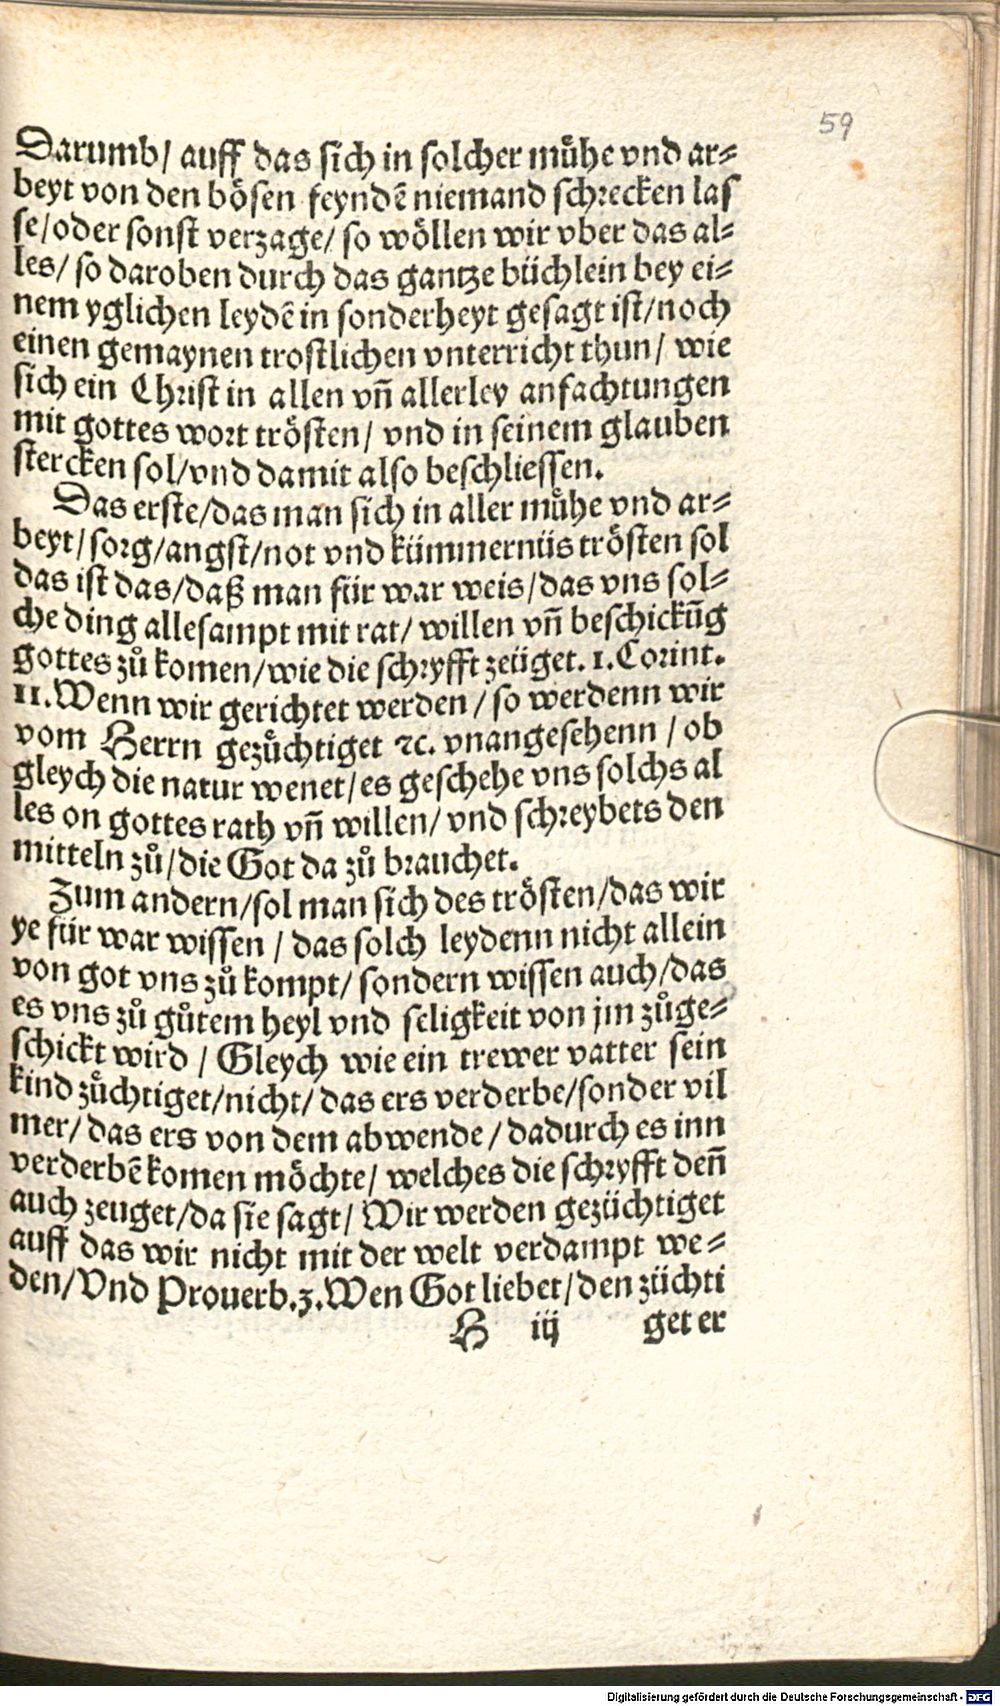 59
Darumb/ auff das sich in solcher mühe vnd ar⸗
beyt von den bösen feyndē niemand schrecken las
se/oder sonst verzage/ so wöllen wir vber das al⸗
les/ so daroben durch das gantze büchlein bey ei⸗
nem yglichen leydē in sonderheyt gesagt ist/noch
einen gemaynen trostlichen vnterricht thun/ wie
sich ein Christ in allen vñ allerley anfachtungen
mit gottes wort trösten/ vnd in seinem glauben
stercken sol/vnd damit also beschliessen.
Das erste/das man sich in aller mühe vnd ar⸗
beyt/sorg/angst/not vnd kümmernüs trösten sol
das ist das/daß man für war weis/das vns sol⸗
che ding allesampt mit rat/ willen vñ beschickūg
gottes zů komen/wie die schryfft zeüget. 1. Corint.
11. Wenn wir gerichtet werden/ so werdenn wir
vom Herrn gezůchtiget ⁊c. vnangesehenn/ ob
gleych die natur wenet/es geschehe vns solchs al
les on gottes rath vñ willen/ vnd schreybets den
mitteln zů/die Got da zů brauchet.
Zum andern/sol man sich des trösten/das wir
ye für war wissen/ das solch leydenn nicht allein
von got vns zů kompt/ sondern wissen auch/das
es vns zů gůtem heyl vnd seligkeit von jm zůge⸗
schickt wird/ Gleych wie ein trewer vatter sein
kind zůchtiget/nicht/ das ers verderbe/sonder vil
mer/ das ers von dem abwende/ dadurch es inn
verderbē komen möchte/ welches die schryfft deñ
auch zeuget/da sie sagt/ Wir werden gezüchtiget
auff das wir nicht mit der welt verdampt we⸗
den/Vnd Prouerb.3. Wen Got liebet/den züchti
H iij get er
Digitalisierung gefördert durch die Deutsche Forschungsgemeinschaft - DFG